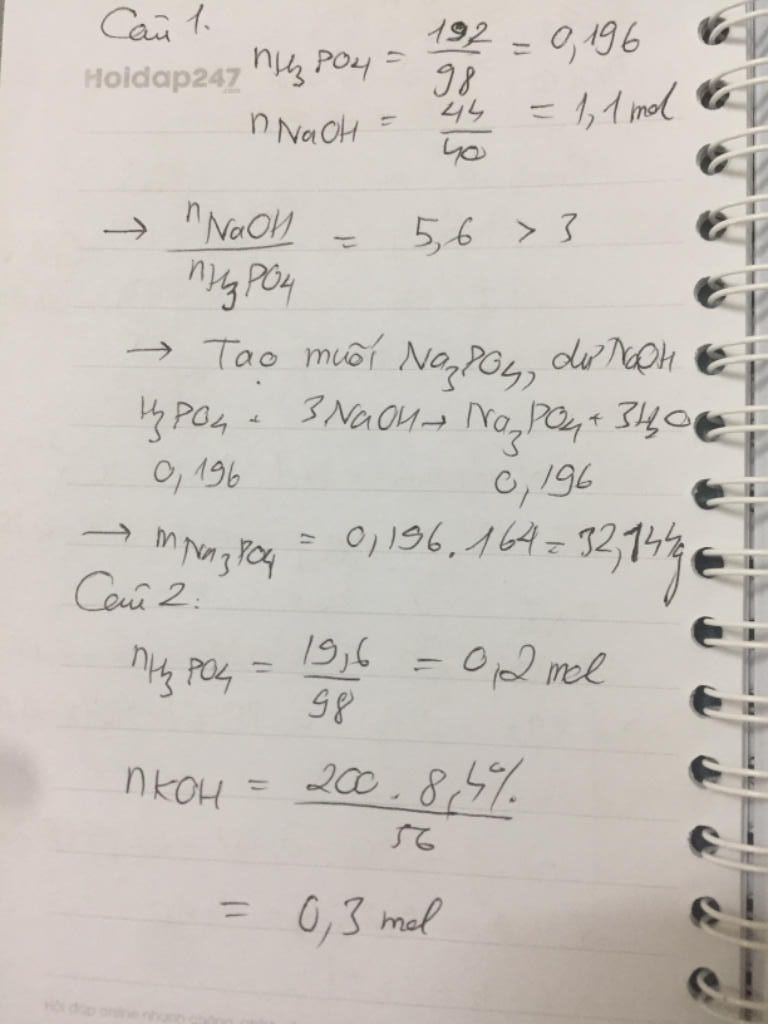 Câu 1.
nH3PO4 = 192/98 = 0,196
Hoidap247
nNaOH = 44/40 = 1,1 mol
→ nNaOH/nH3PO4 = 5,6 > 3
→ Tạo muối Na3PO4, dư NaOH
H3PO4 + 3NaOH → Na3PO4 + 3H2O
0,196 0,196
→ mNa3PO4 = 0,196.164 = 32,144g
Câu 2:
nH3PO4 = 19,6/98 = 0,2 mol
nKOH = 200.8,4%/56
= 0,3 mol
Hỏi đáp online nhanh chóng,